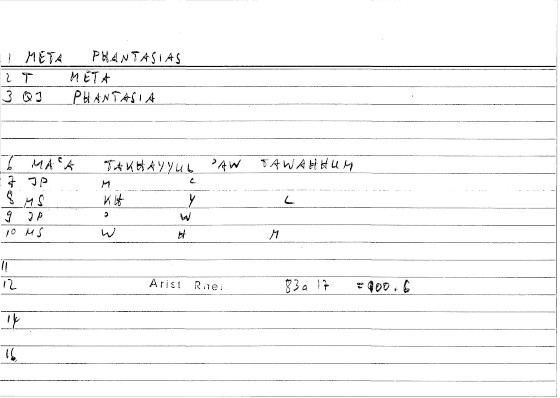 1 META PHANTASIAS
2 T META
3 QJ PHANTASIA
6 MAʿA TAKHAYYUL ʾAW TAWAHHUM
7 JP M ʿ
8 MS KH Y L
9 JP ʾ W
10 MS W H M
11
12 Arist Rhet 83a 17 = 100.6
14
16